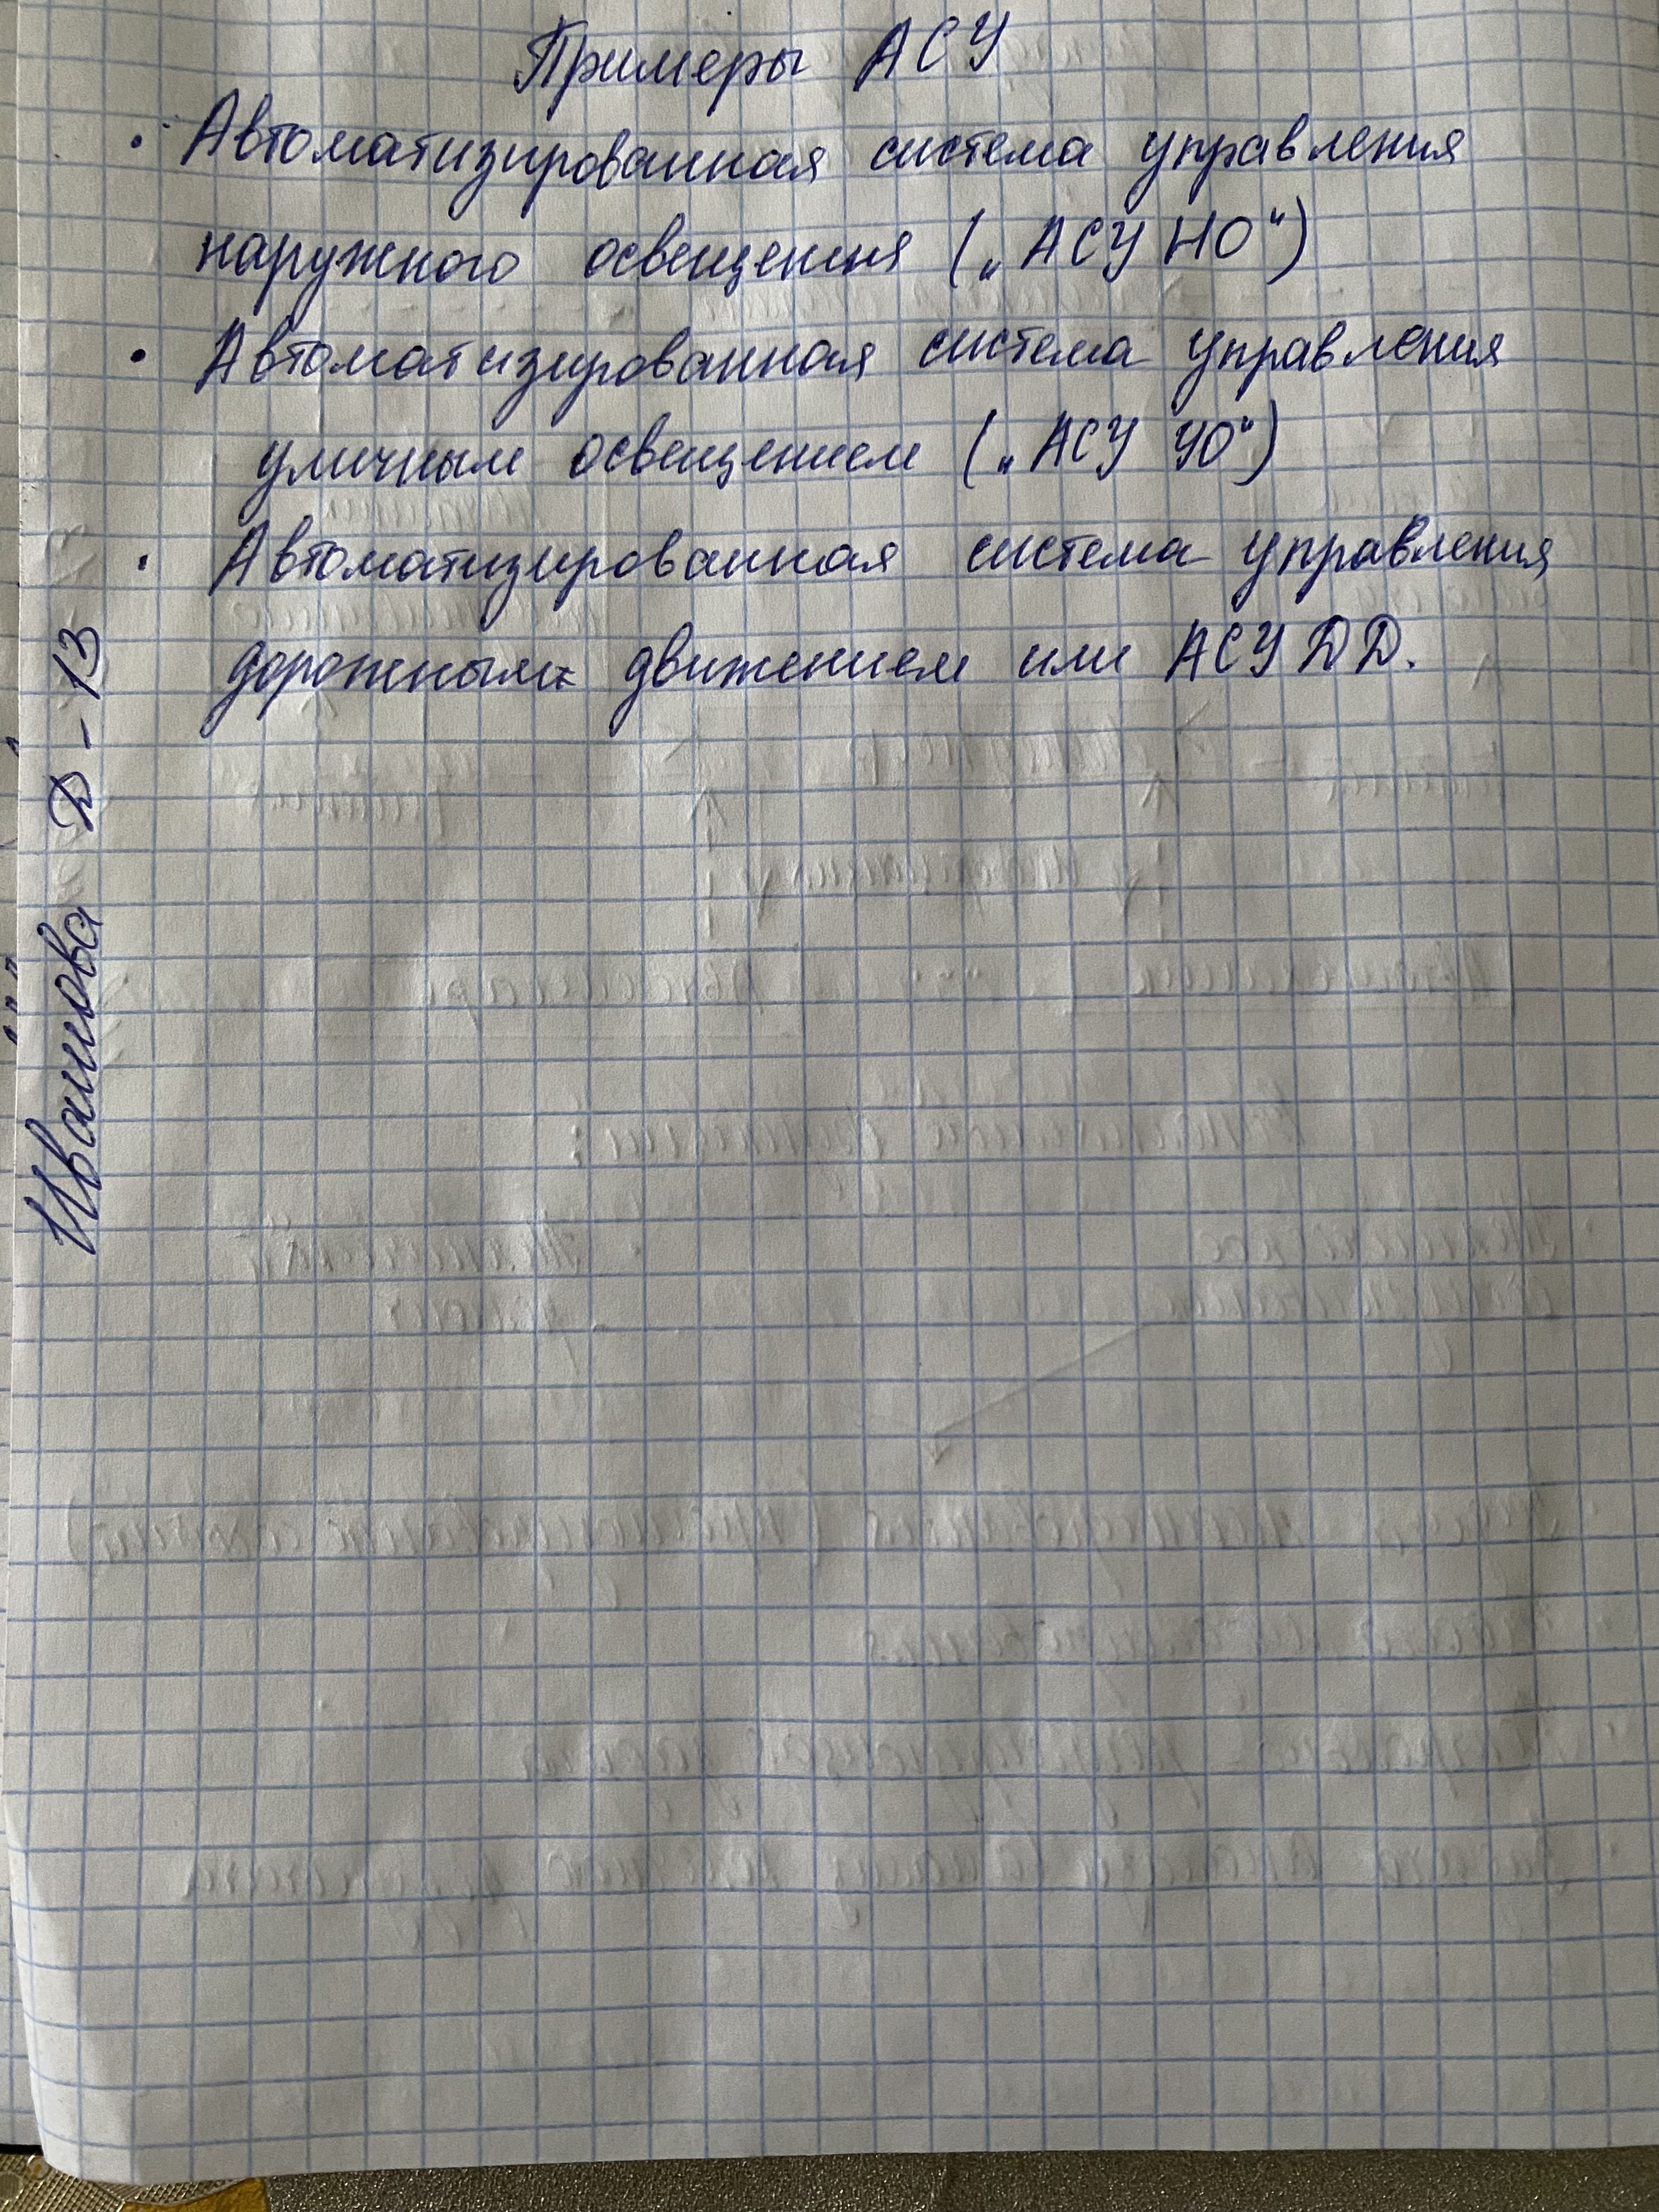 Примеры АСУ
• Автоматизированная система управления
наружного освещения („АСУ НО“)
• Автоматизированная система управления
уличным освещением („АСУ УО“)
• Автоматизированная система управления
дорожным движением или АСУ ДД.
Иванова Д-13